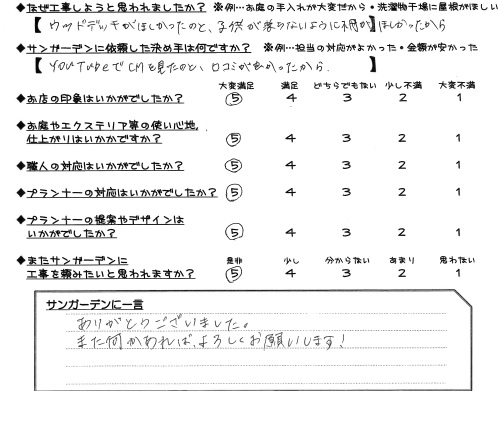 ◆なぜ工事しようと思われましたか？ ※例…お庭の手入れが大変だから・洗濯物干場に屋根がほしい
【 ウッドデッキがほしかったのと、子供が落ちないように柵が】ほしかったから
◆サンガーデンに依頼した決め手は何ですか？ ※例…担当の対応がよかった・金額が安かった
【 YOUTUBEでCMを見たのと、口コミが良かったから. 】
大変満足 満足 どちらでもない 少し不満 大変不満
◆お店の印象はいかがでしたか？ 5 4 3 2 1
◆お庭やエクステリア等の使い心地,
仕上がりはいかかですか？ 5 4 3 2 1
◆職人の対応はいかがでしたか？ 5 4 3 2 1
◆プランナーの対応はいかがでしたか？ 5 4 3 2 1
◆プランナーの提案やデザインは
いかがでしたか？ 5 4 3 2 1
◆またサンガーデンに 是非 少し 分からない あまり 思わない
工事を頼みたいと思われますか？ 5 4 3 2 1
サンガーデンに一言
ありがとうございました。
また何かあれば、よろしくお願いします！